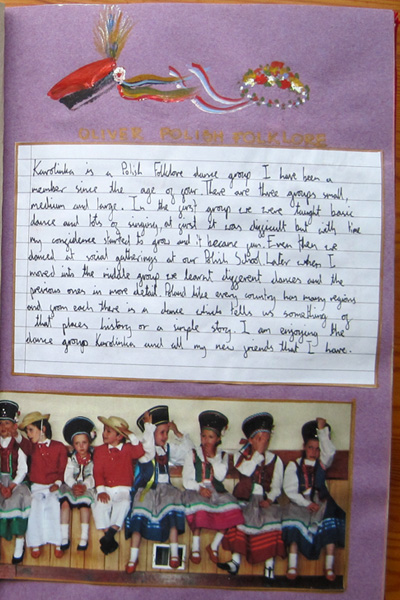 OLIVER POLISH FOLKLORE
Karolinka is a Polish Folklore dance group I have been a
member since the age of four. There are three groups small,
medium and large. In the first group we were taught basic
dance and lots of singing, at first it was difficult but with time
my confidence started to grow and it became fun. Even then we
danced at social gatherings at our Polish School. Later when I
moved into the middle group we learnt different dances and the
previous ones in more detail. Poland like every country has many regions
and from each there is a dance which tells us something of
that places history or a simple story. I am enjoying the
dance group Karolinka and all my new friends that I have.